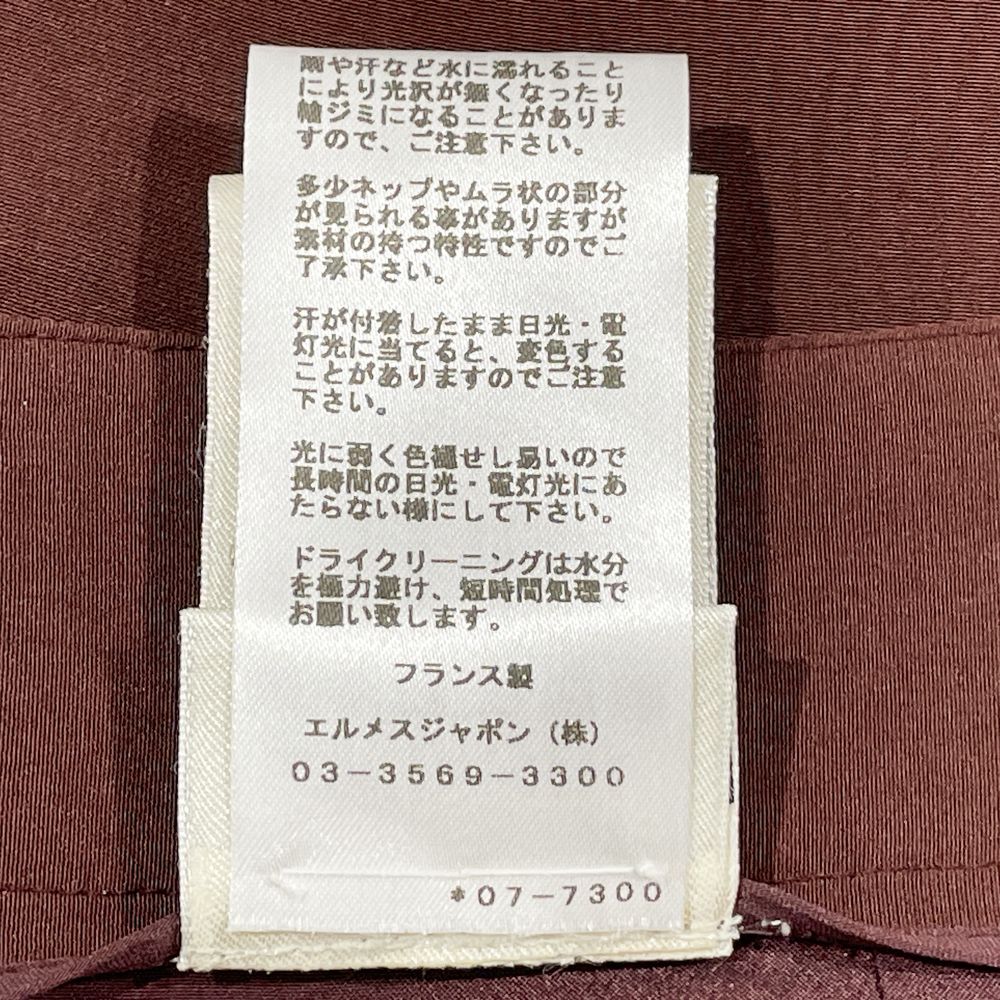 雨や汗など水に濡れること
により光沢が無くなったり
輪ジミになることがありま
すので、ご注意下さい。
多少ネップやムラ状の部分
が見られる事がありますが
素材の持つ特性ですのでご
了承下さい。
汗が付着したまま日光・電
灯光に当てると、変色する
ことがありますのでご注意
下さい。
光に弱く色褪せし易いので
長時間の日光・電灯光にあ
たらない様にして下さい。
ドライクリーニングは水分
を極力避け、短時間処理で
お願い致します。
フランス製
エルメスジャポン（株）
03-3569-3300
*07-7300